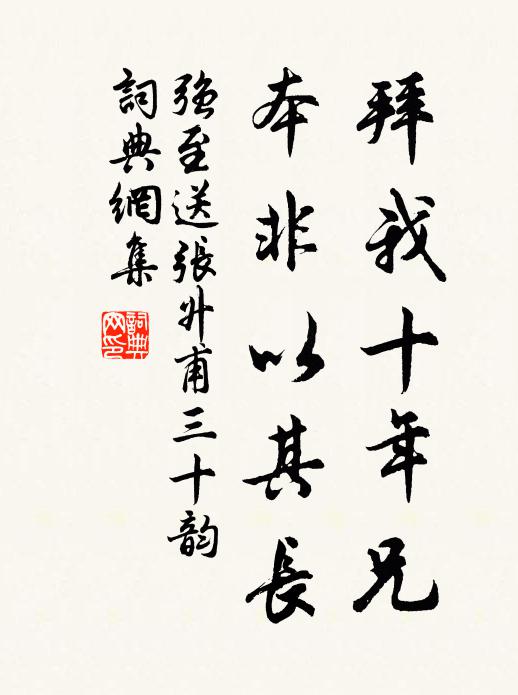 拜我十年兄
本非以其長
強至送張升甫三十韵
詞典網集
詞典網印